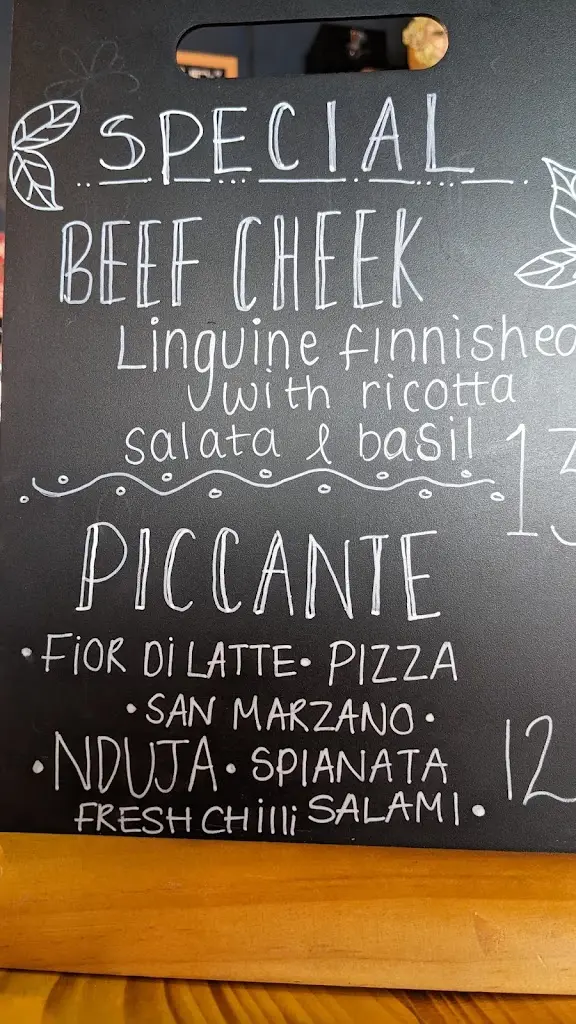 SPECIAL
BEEF CHEEK
Linguine finnished
with ricotta
salata & basil
13
PICCANTE
• FiOR Di LATTE • PIZZA
• SAN MARZANO •
• NDUJA • SPIANATA
12
FRESH CHilli SALAMI •